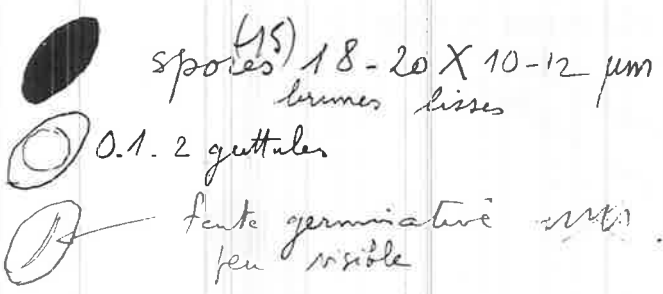 spores (15) 18-20 X 10-12 µm
brunes lisses
0.1.2 guttules
fente germinative
peu visible